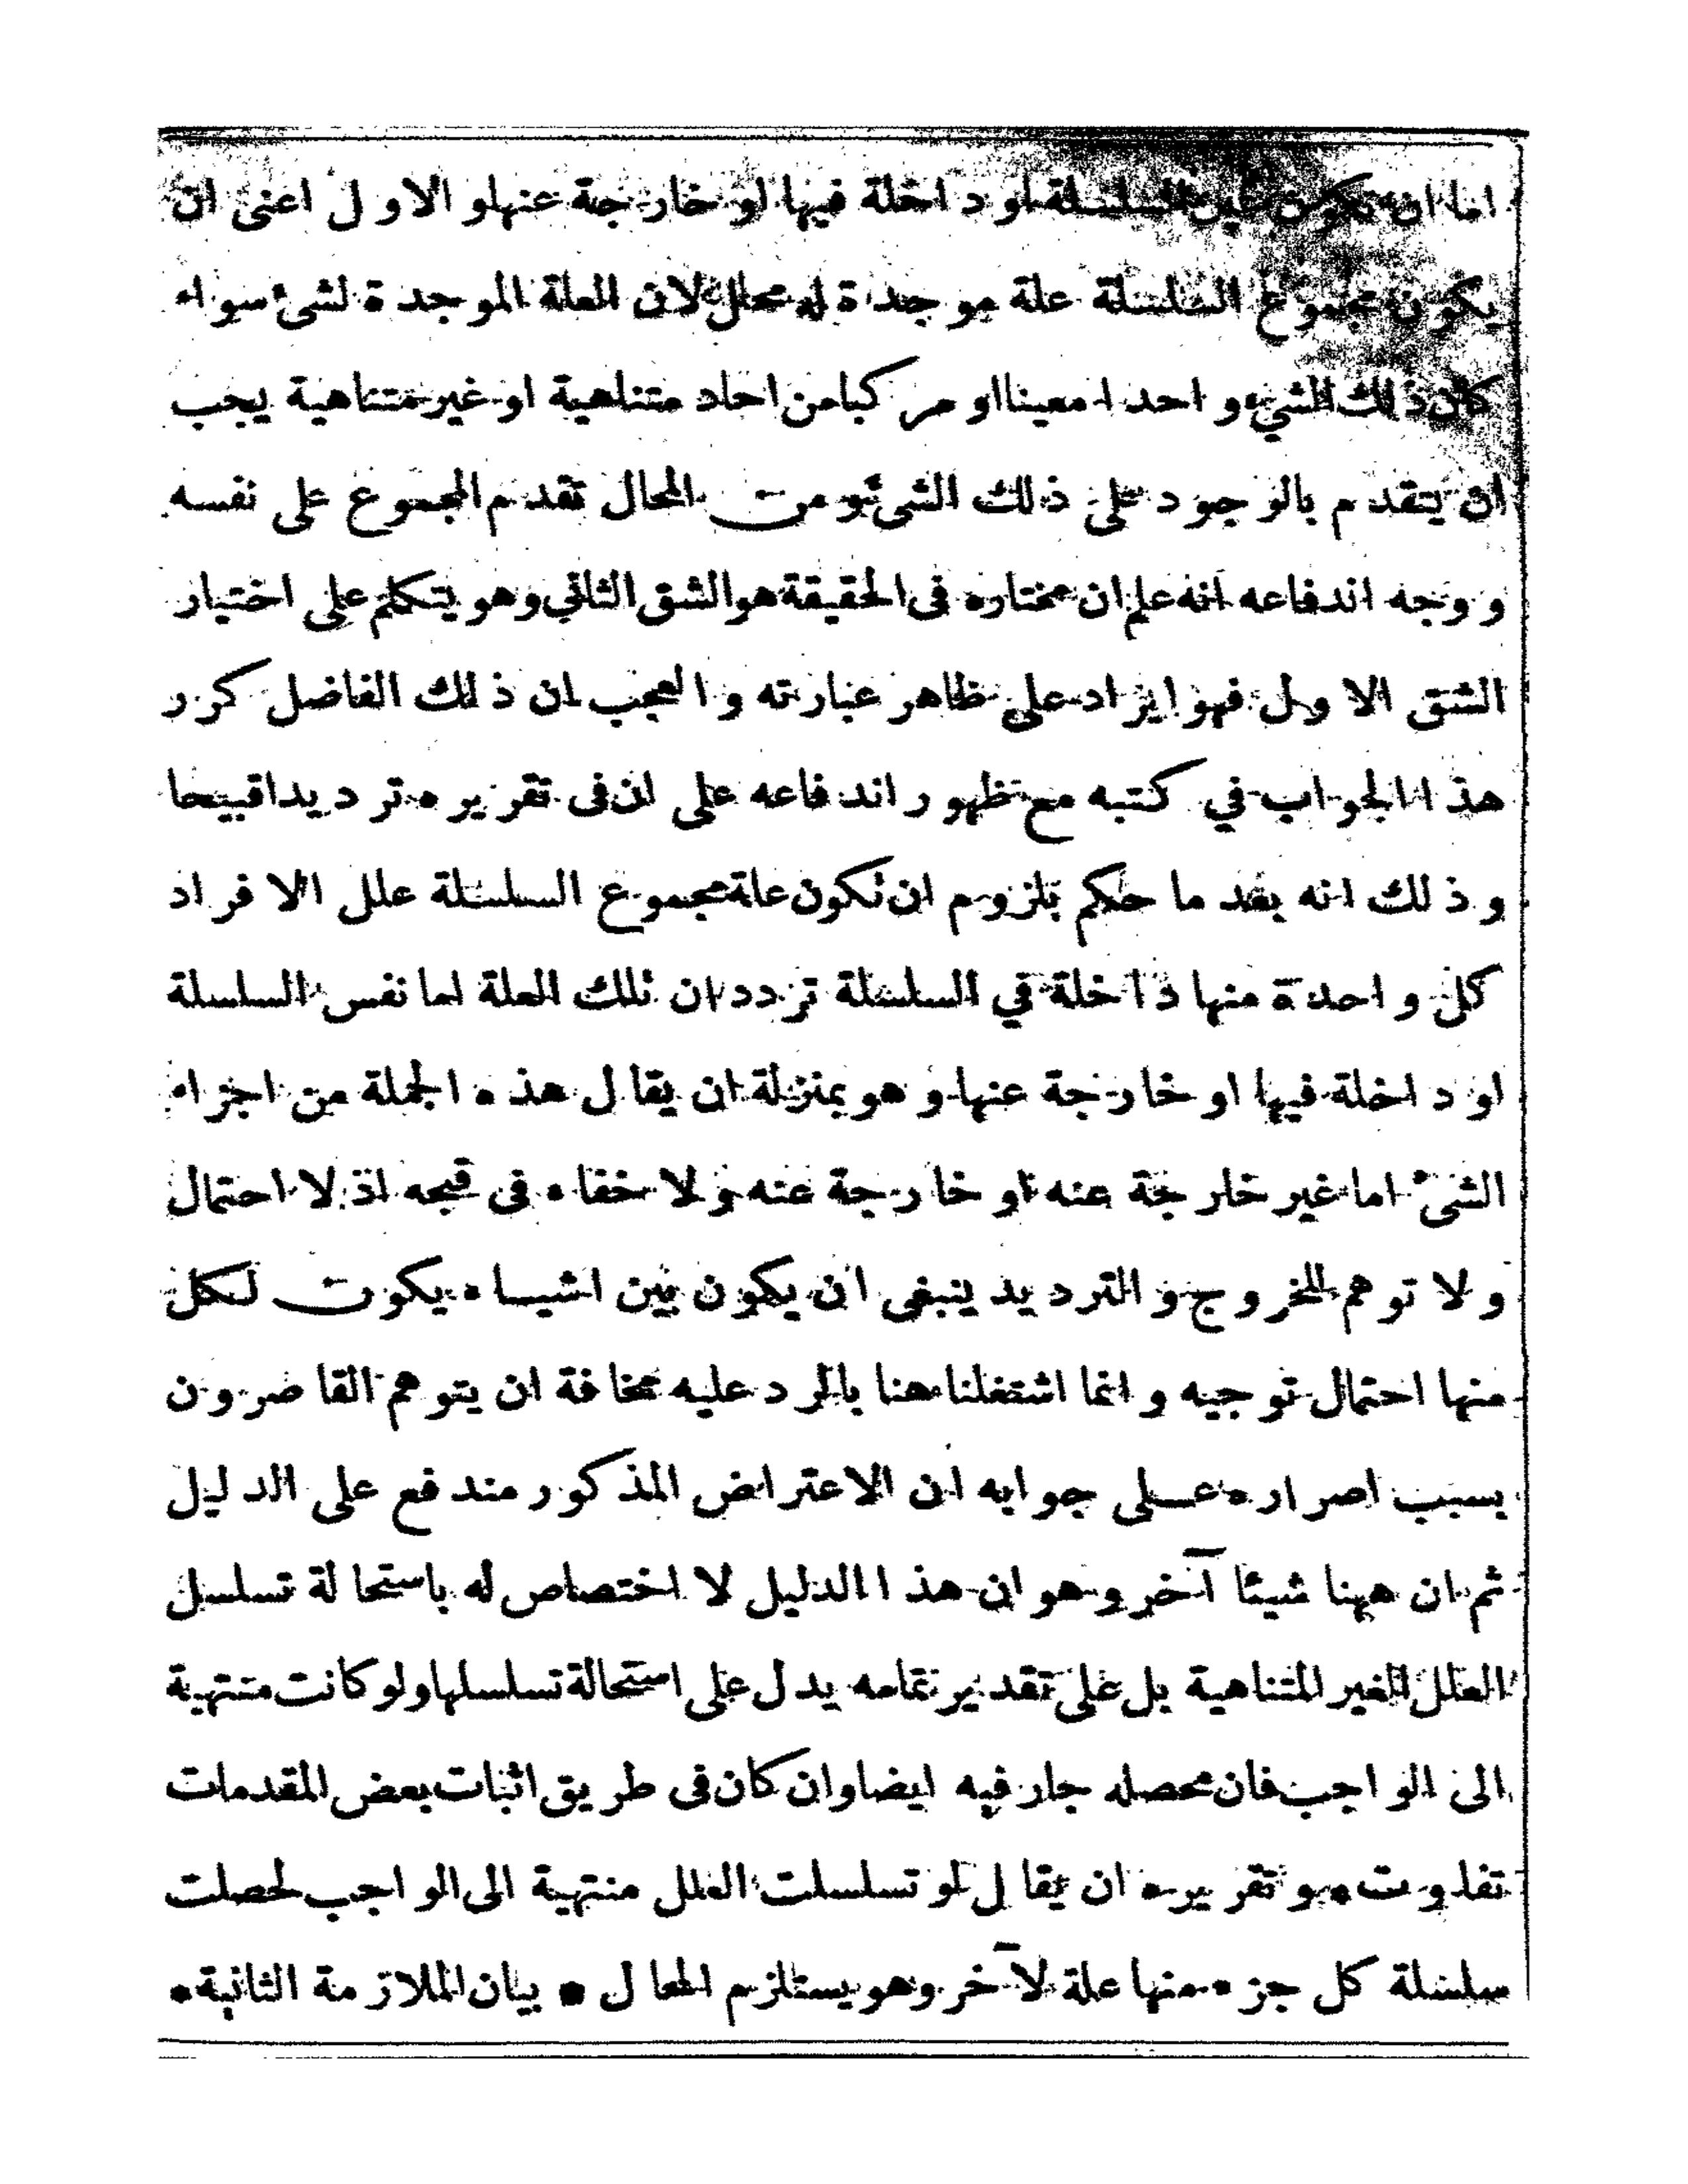 اما ان تكون عين السلسلة او داخلة فيها او خارجة عنها و الاول اعنى ان
يكون مجموع السلسلة علة موجدة له محال لان العلة الموجدة لشىء سواء
كان ذلك الشيء واحدا معينا او مركبا من احاد متناهية او غير متناهية يجب
ان يتقدم بالوجود على ذلك الشىء و من المحال تقدم المجموع على نفسه
و وجه اندفاعه انه علم ان مختاره فى الحقيقة هو الشق الثانى وهو يتكلم على اختيار
الشق الاول فهو ايراد على ظاهر عبارته و العجب ان ذلك الفاضل كرر
هذا الجواب في كتبه مع ظهور اندفاعه على ان فى تقريره ترديدا قبيحا
و ذلك انه بعد ما حكم بلزوم ان تكون علة مجموع السلسلة علل الافراد
كل واحدة منها داخلة في السلسلة تردد ان تلك العلة اما نفس السلسلة
او داخلة فيها او خارجة عنها و هو بمنزلة ان يقال هذه الجملة من اجزاء
الشىء اما غير خارجة عنه او خارجة عنه و لا خفاء فى قبحه اذ لا احتمال
و لا توهم للخروج و الترديد ينبغى ان يكون بين اشياء يكون لكل
منها احتمال توجيه و انما اشتغلنا هنا بالرد عليه مخافة ان يتوهم القاصرون
بسبب اصراره على جوابه ان الاعتراض المذكور مندفع على الدليل
ثم ان ههنا شيئا آخر و هو ان هذا الدليل لا اختصاص له باستحالة تسلسل
العلل الغير المتناهية بل على تقدير تمامه يدل على استحالة تسلسلها و لو كانت منتهية
الى الواجب فان محصله جار فيه ايضا و ان كان فى طريق اثبات بعض المقدمات
تفاوت • و تقريره ان يقال لو تسلسلت العلل منتهية الى الواجب لحصلت
سلسلة كل جزء منها علة لآخر و هو يستلزم المحال • بيان الملازمة الثانية •